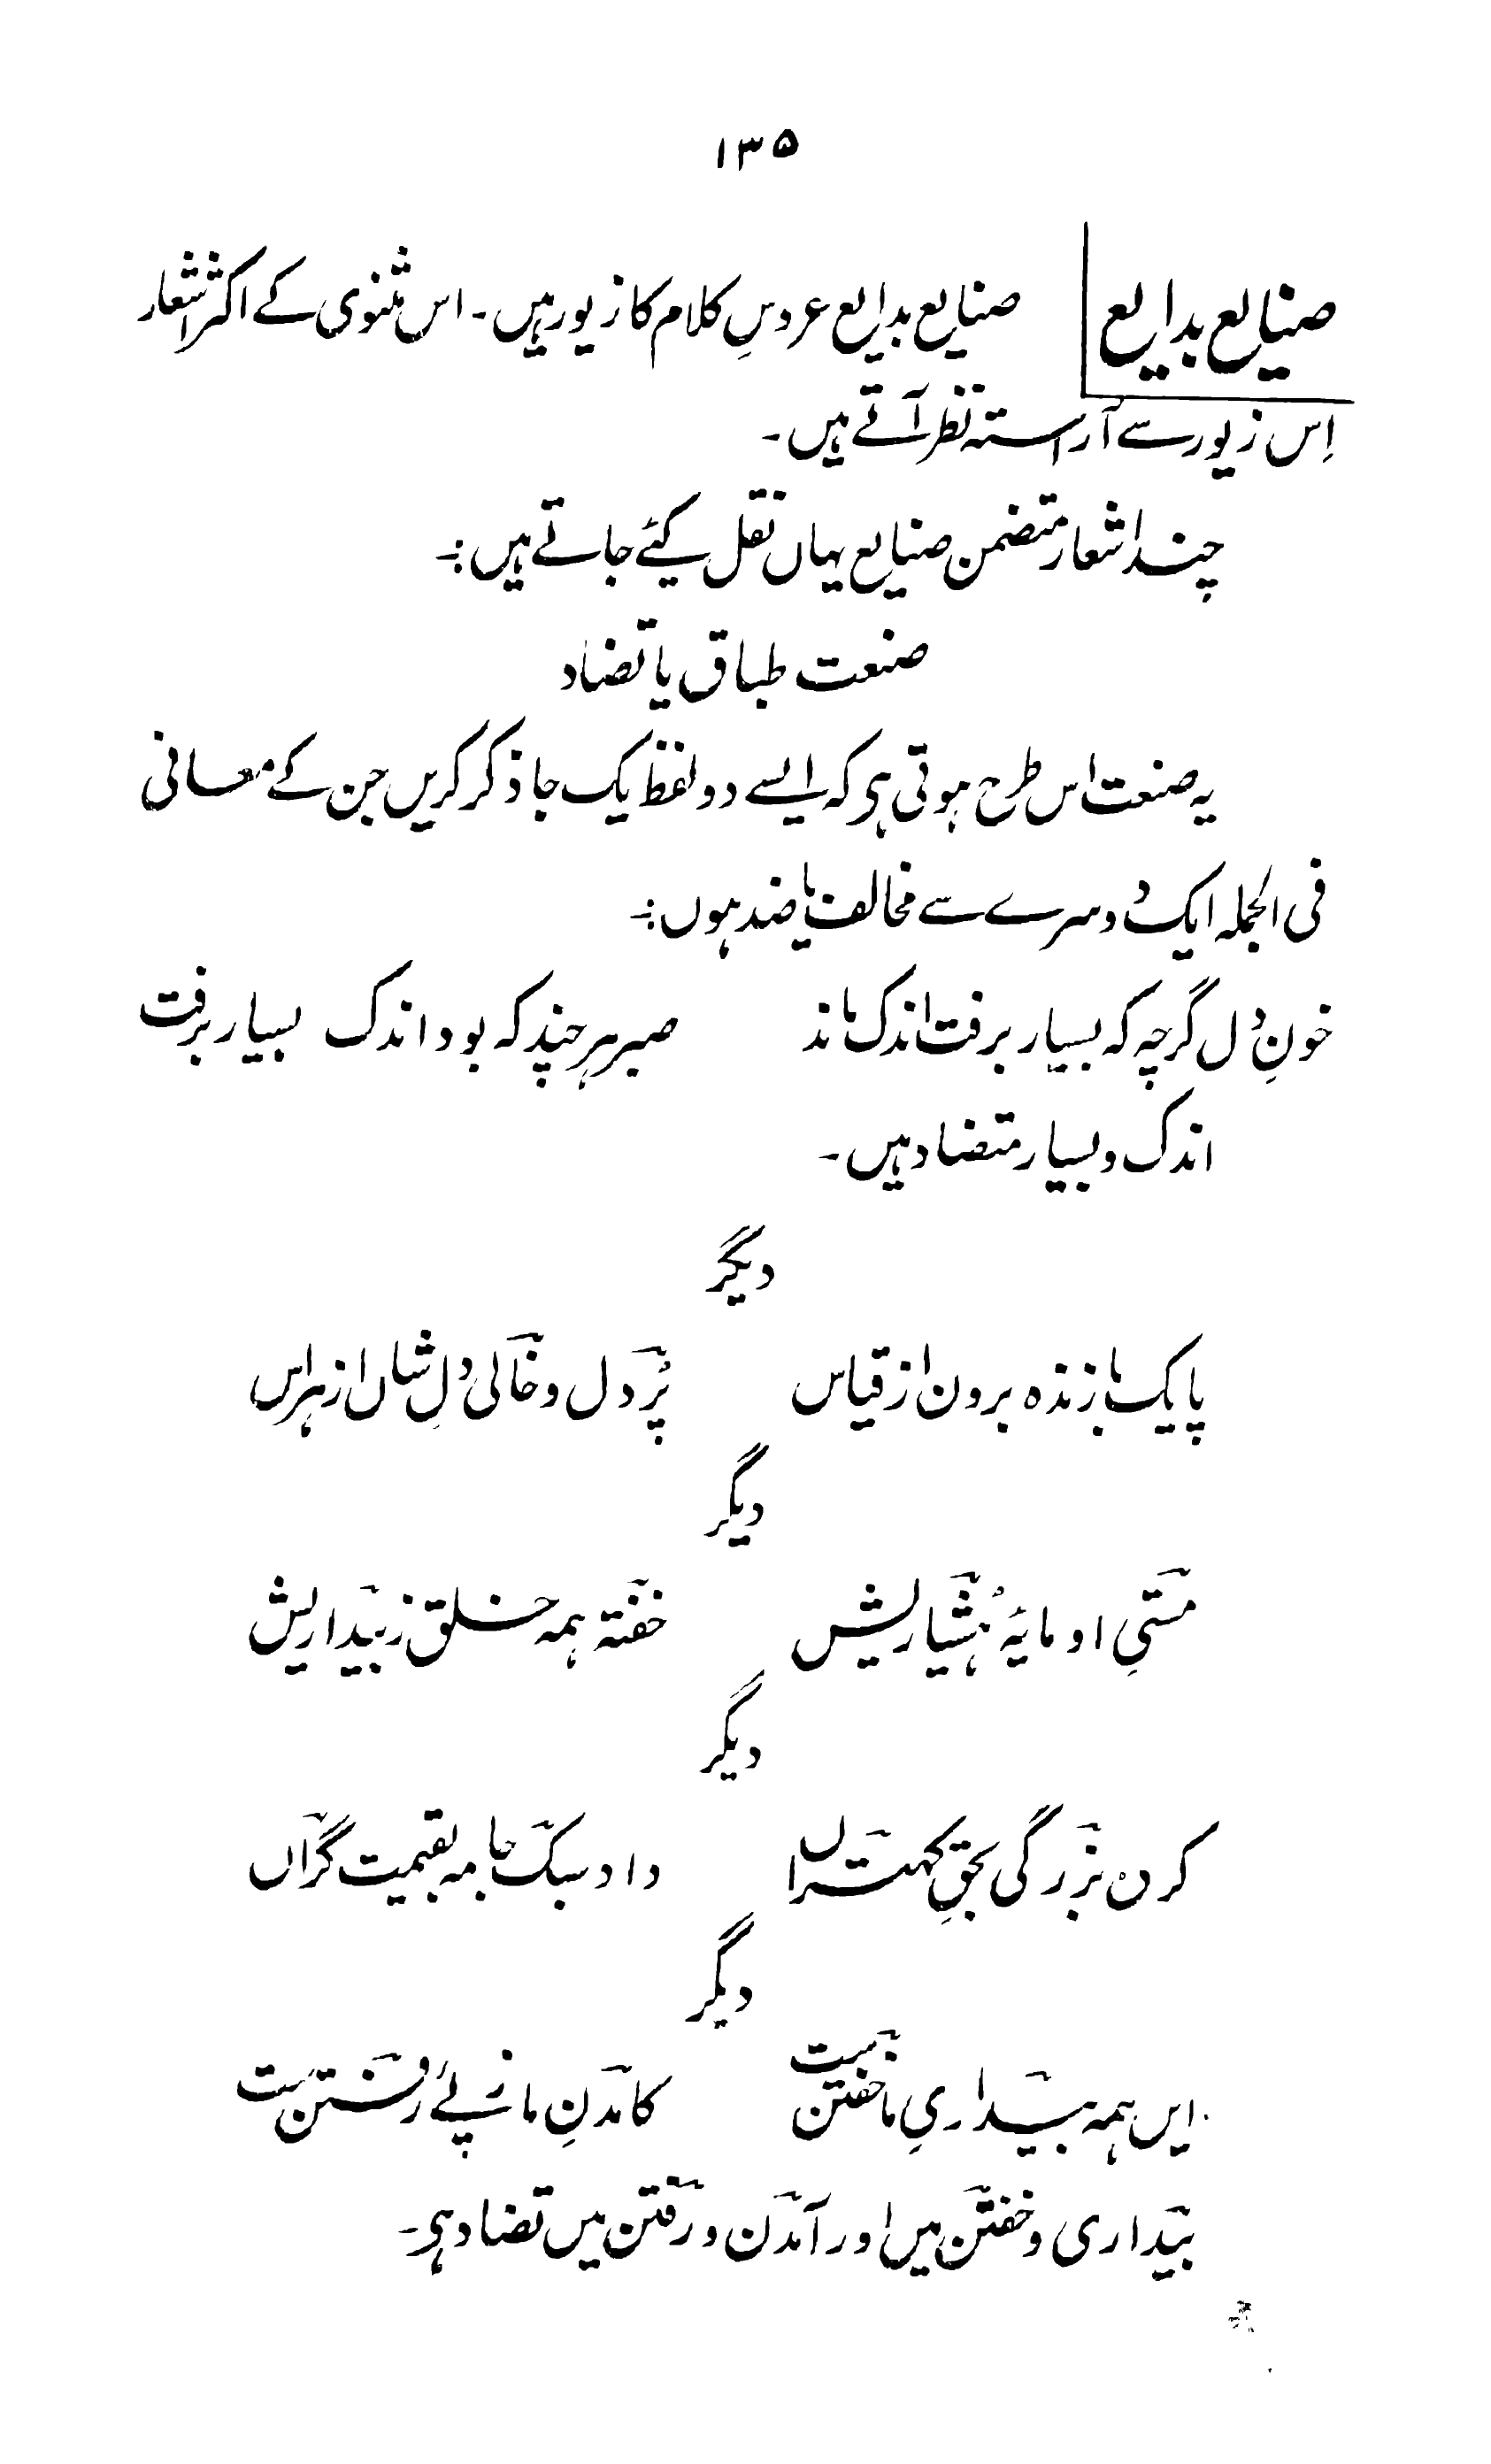 ۱۳۵
صنایع بدایع صنایع بدایع عروسِ کلام کا زیور ہیں۔ اس مثنوی کے اکثر اشعار
اِس زیور سے آراستہ نظر آتے ہیں۔
چند اشعار متضمن صنایع یہاں نقل کیئے جاتے ہیں :۔
صنعت طباق یا تضاد
یہ صنعت اس طرح ہوتی ہی کہ ایسے دو لفظ یک جا ذکر کریں جن کے معانی
فی الجملہ ایک دُوسرے سے مخالف یا ضد ہوں :۔
خونِ دُل گرچہ کہ بسیار برفت اندک ماند صبر ہر چند کہ بود اندک بسیار برفت
اندک و بسیار متضاد ہیں۔
دیگر
پایک بازندہ برون از قیاس پُر دل و خالی دُلِ شاں از ہراس
دیگر
مستیِ او مایۂ ہُشیاریش خفتہ ہمہ خلق ز بیداریش
دیگر
کردہ بزرگی بحقِ کہتراں داد سبک جامہ بقیمت گراں
دیگر
ایں ہمہ بیداریِ ما خفتن ست کامدنِ ما ز پئے رفتن ست
بیداری و خفتن میں اور آمدن و رفتن میں تضاد ہی۔